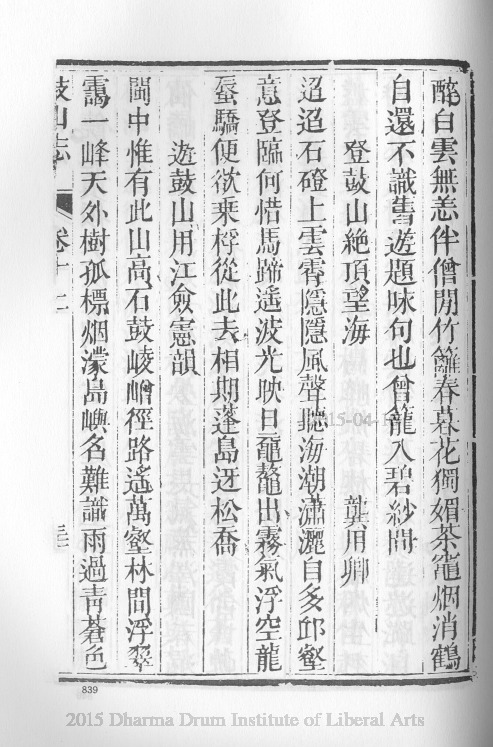 醉白雲無恙伴僧閒竹籬春暮花獨媚茶竈烟消鶴
自還不識舊遊題味句也曾籠入碧紗間
登鼓山絶頂望海 龔用卿
迢迢石磴上雲霄隱隱風聲聽海潮瀟灑自多邱壑
意登臨何惜馬蹄遙波光映日黿鼇出霧氣浮空龍
蜃驕便欲乘桴從此去相期蓬島迓松喬
遊鼓山用江僉憲韻
閩中惟有此山高石鼓崚嶒徑路遙萬壑林間浮翠
靄一峰天外樹孤標烟濛島嶼名難識雨過靑蒼色
鼓山志 卷十二
839
2015-04-1
2015 Dharma Drum Institute of Liberal Arts